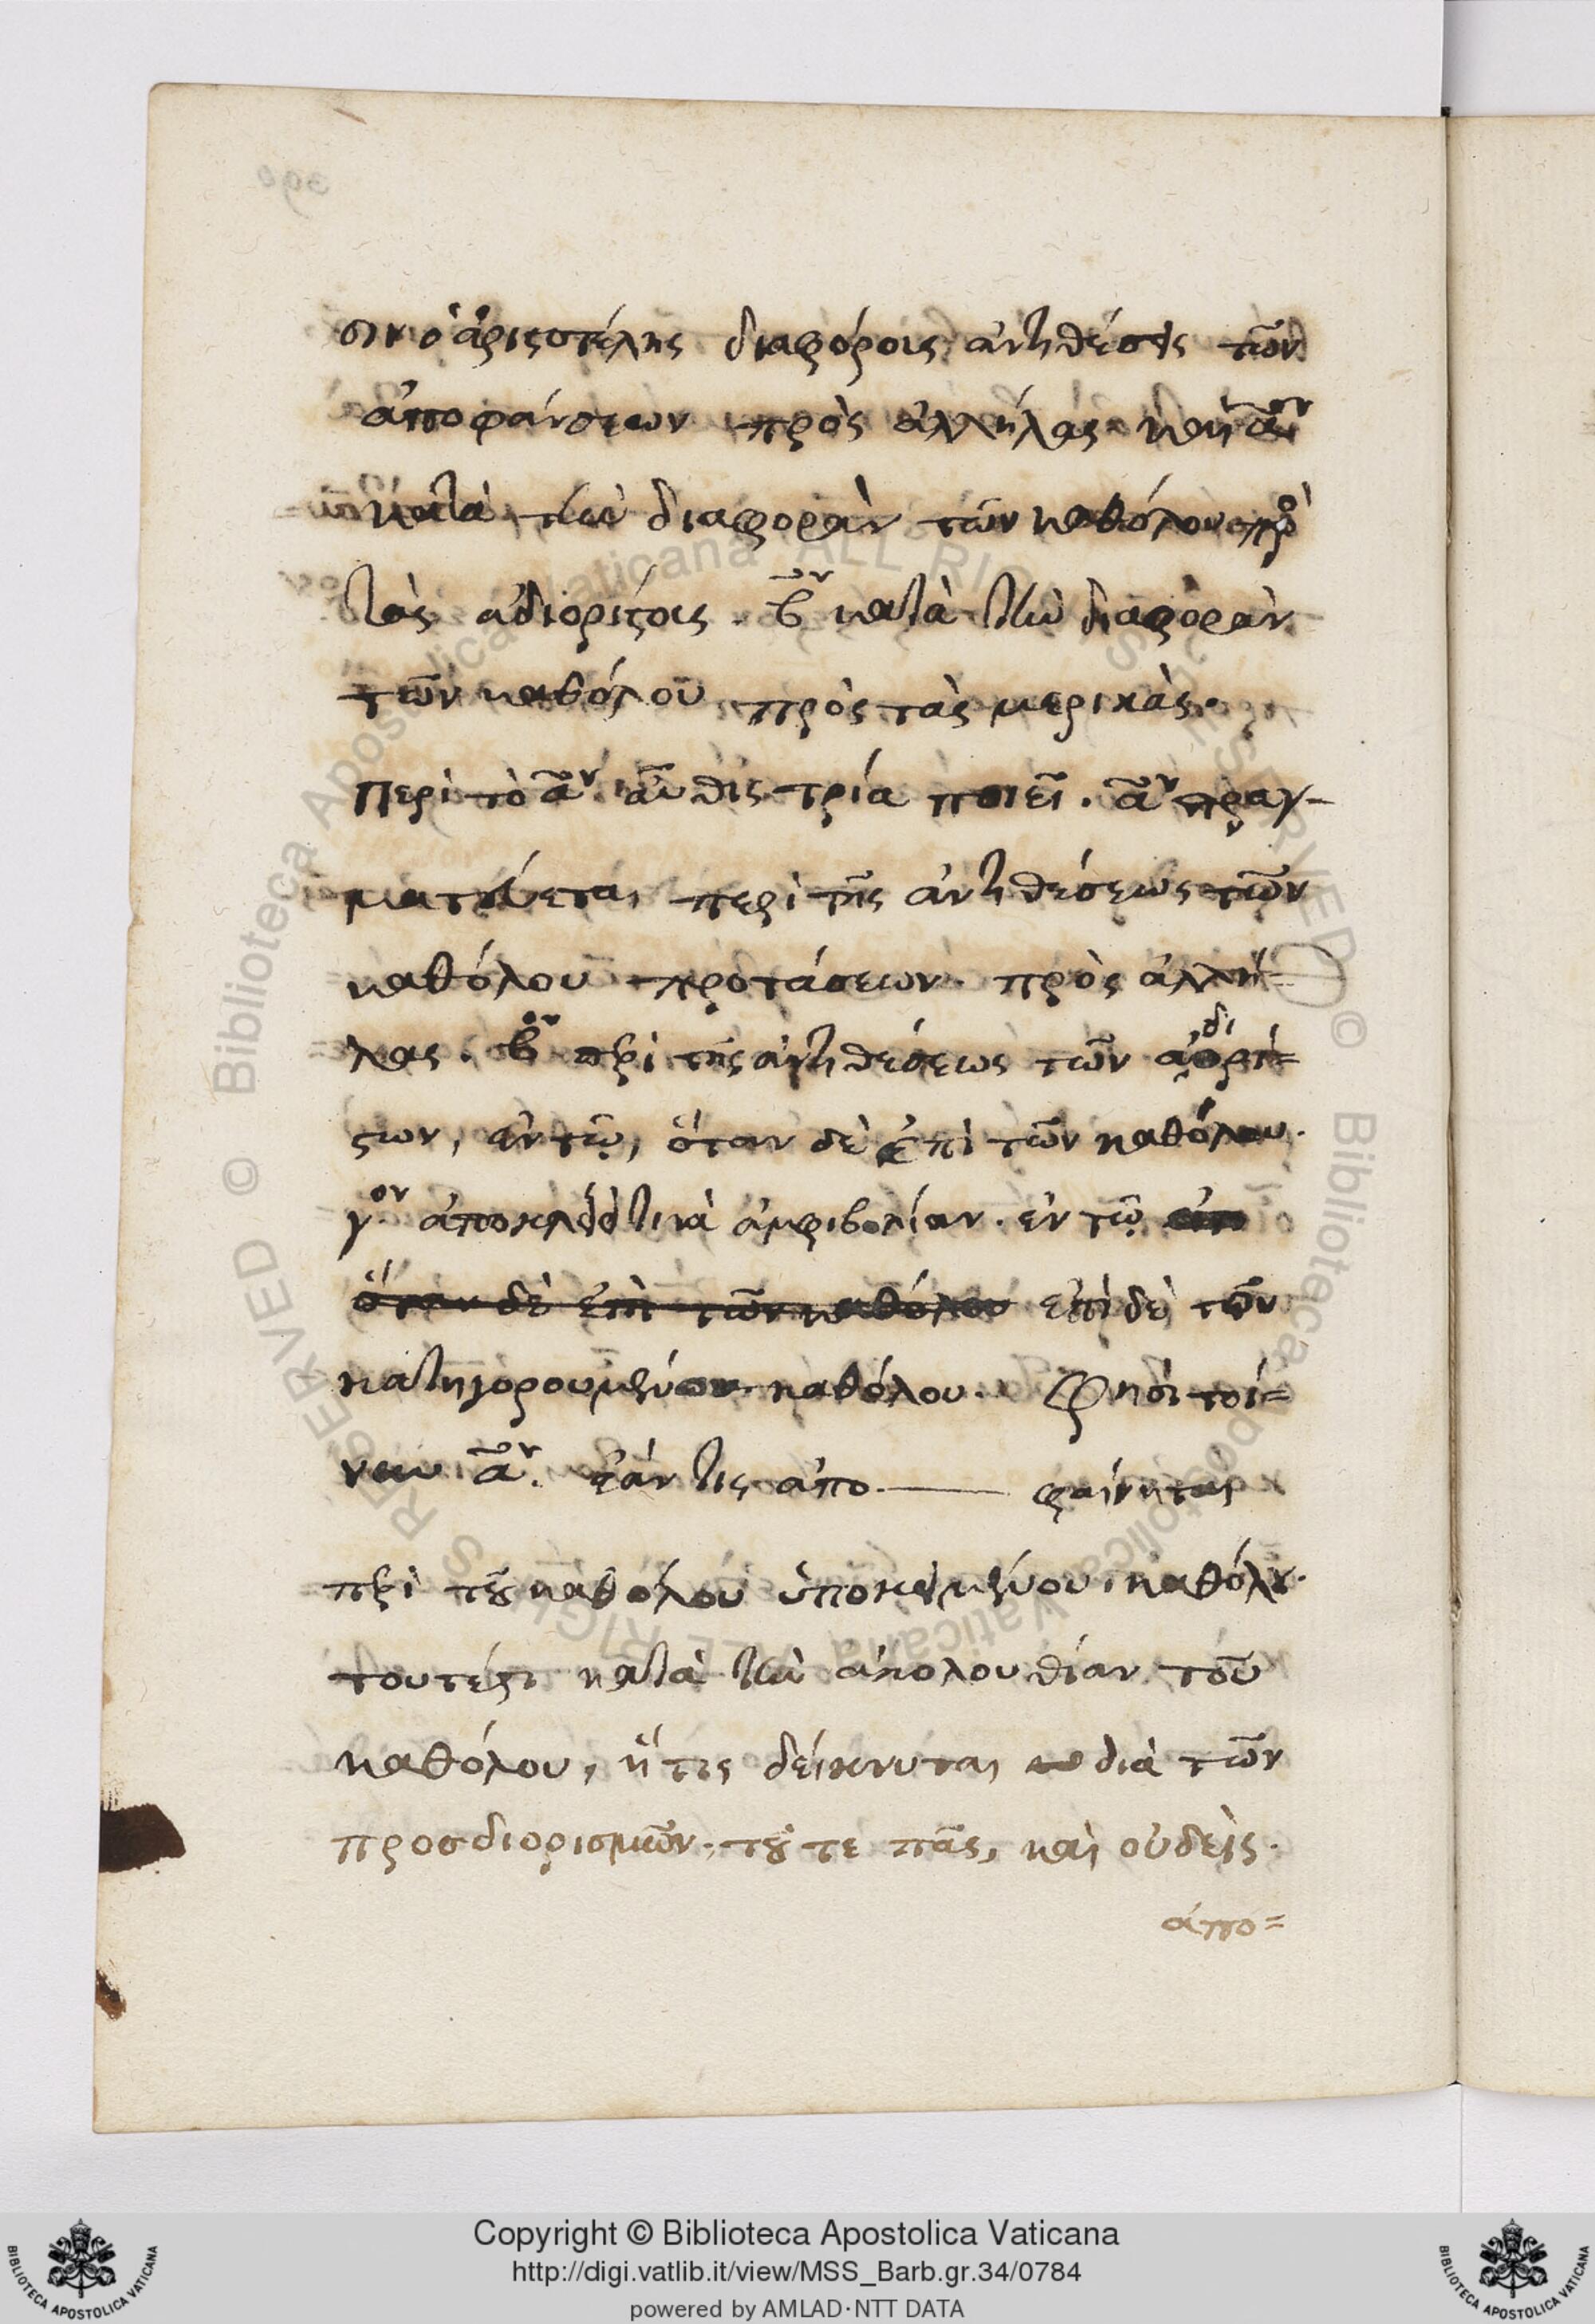 σιν ὁ ἀριστοτέλης διαφόροις ἀντιθέσεις τῶν
ἀποφάνσεων πρὸς ἀλλήλας. καὶ αον
κατὰ τὴν διαφορὰν τῶν καθόλου πρὸς
τὰς ἀδιορίστοις. βον κατὰ τὴν διαφορὰν
τῶν καθόλου πρὸς τὰς μερικὰς.
Περὶ τὸ αον. αὖθις τρία ποιεῖ. αον πραγ-
ματεύεται περὶ τῆς ἀντιθέσεως τῶν
καθόλου προτάσεων. πρὸς ἀλλή-
λας. βον περὶ τῆς ἀντιθέσεως τῶν ἀδιορί=
στων, ἐν τῷ, ὅταν δὲ ἐπὶ τῶν καθόλου.
γον ἀποκλείει τινὰ ἀμφιβολίαν. ἐν τῷ
ὅταν δὲ ἐπὶ τῶν καθόλου ἐπὶ δὲ τῶν
κατηγορουμένων καθόλου. Φησὶ τοί=
νυν αον. ἐάν τις ἀπο — φαίνηται
περὶ τοῦ καθόλου ὑποκειμένου, καθόλου.
τουτέστι κατὰ τὴν ἀκολουθίαν τοῦ
καθόλου, ἥτις δείκνυται διὰ τῶν
προσδιορισμῶν. τοῦ τε πᾶς, καὶ οὐδεὶς.
ἀπο=
Copyright © Biblioteca Apostolica Vaticana
http://digi.vatlib.it/view/MSS_Barb.gr.34/0784
powered by AMLAD·NTT DATA